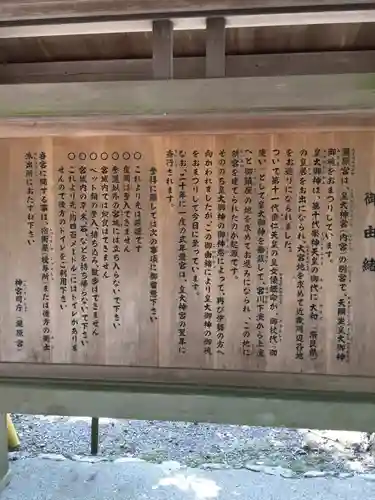 御由緒
瀧原宮は、皇大神宮(内宮)の別宮で、天照坐皇大御神
御魂をおまつりしています。
皇大御神は、第十代崇神天皇の御代に大和(奈良県)
の皇居をお出になられ、大宮地を求めて近畿周辺各地
をお巡りになられました。
ついで第十一代垂仁天皇の皇女倭姫命が、御杖代(御
使い)として皇大御神を奉戴して、宮川下流から上流
へと御鎮座の地を求めてお巡りになられ、この地に
別宮を建てられたのが起源です。
そののち皇大御神の御神慮によって、再び伊勢の方へ
向かわれましたが、この御由緒により皇大御神の御魂
をおまつりして今日に至っています。
なお、二十年に一度の式年遷宮は、皇大神宮の翌年に
斎行されます。
参拝に際しては次の事項に御留意下さい
○これより先は禁煙です
○宮域内では飲食はできません
○参道以外の宮地には立ち入らないで下さい
○ペット類の曳入・持ち込み、散歩はできません
○宮域内の草木、石などを採らないで下さい
○これより先、約四百メートルにはトイレがありま
せんので後方のトイレをご利用下さい
当宮に関する事は、宿衛屋(授与所)または後方の衛士
派出所におたずね下さい
神宮司庁(瀧原宮)